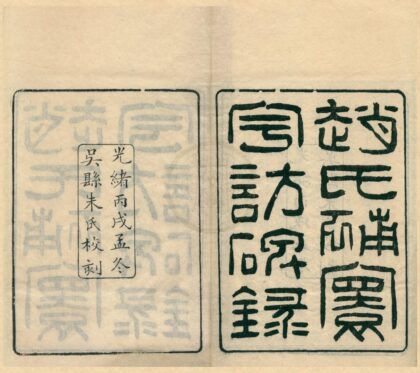 趙氏補寰
宇訪碑錄
光緒丙戌孟冬
吳縣朱氏校刻